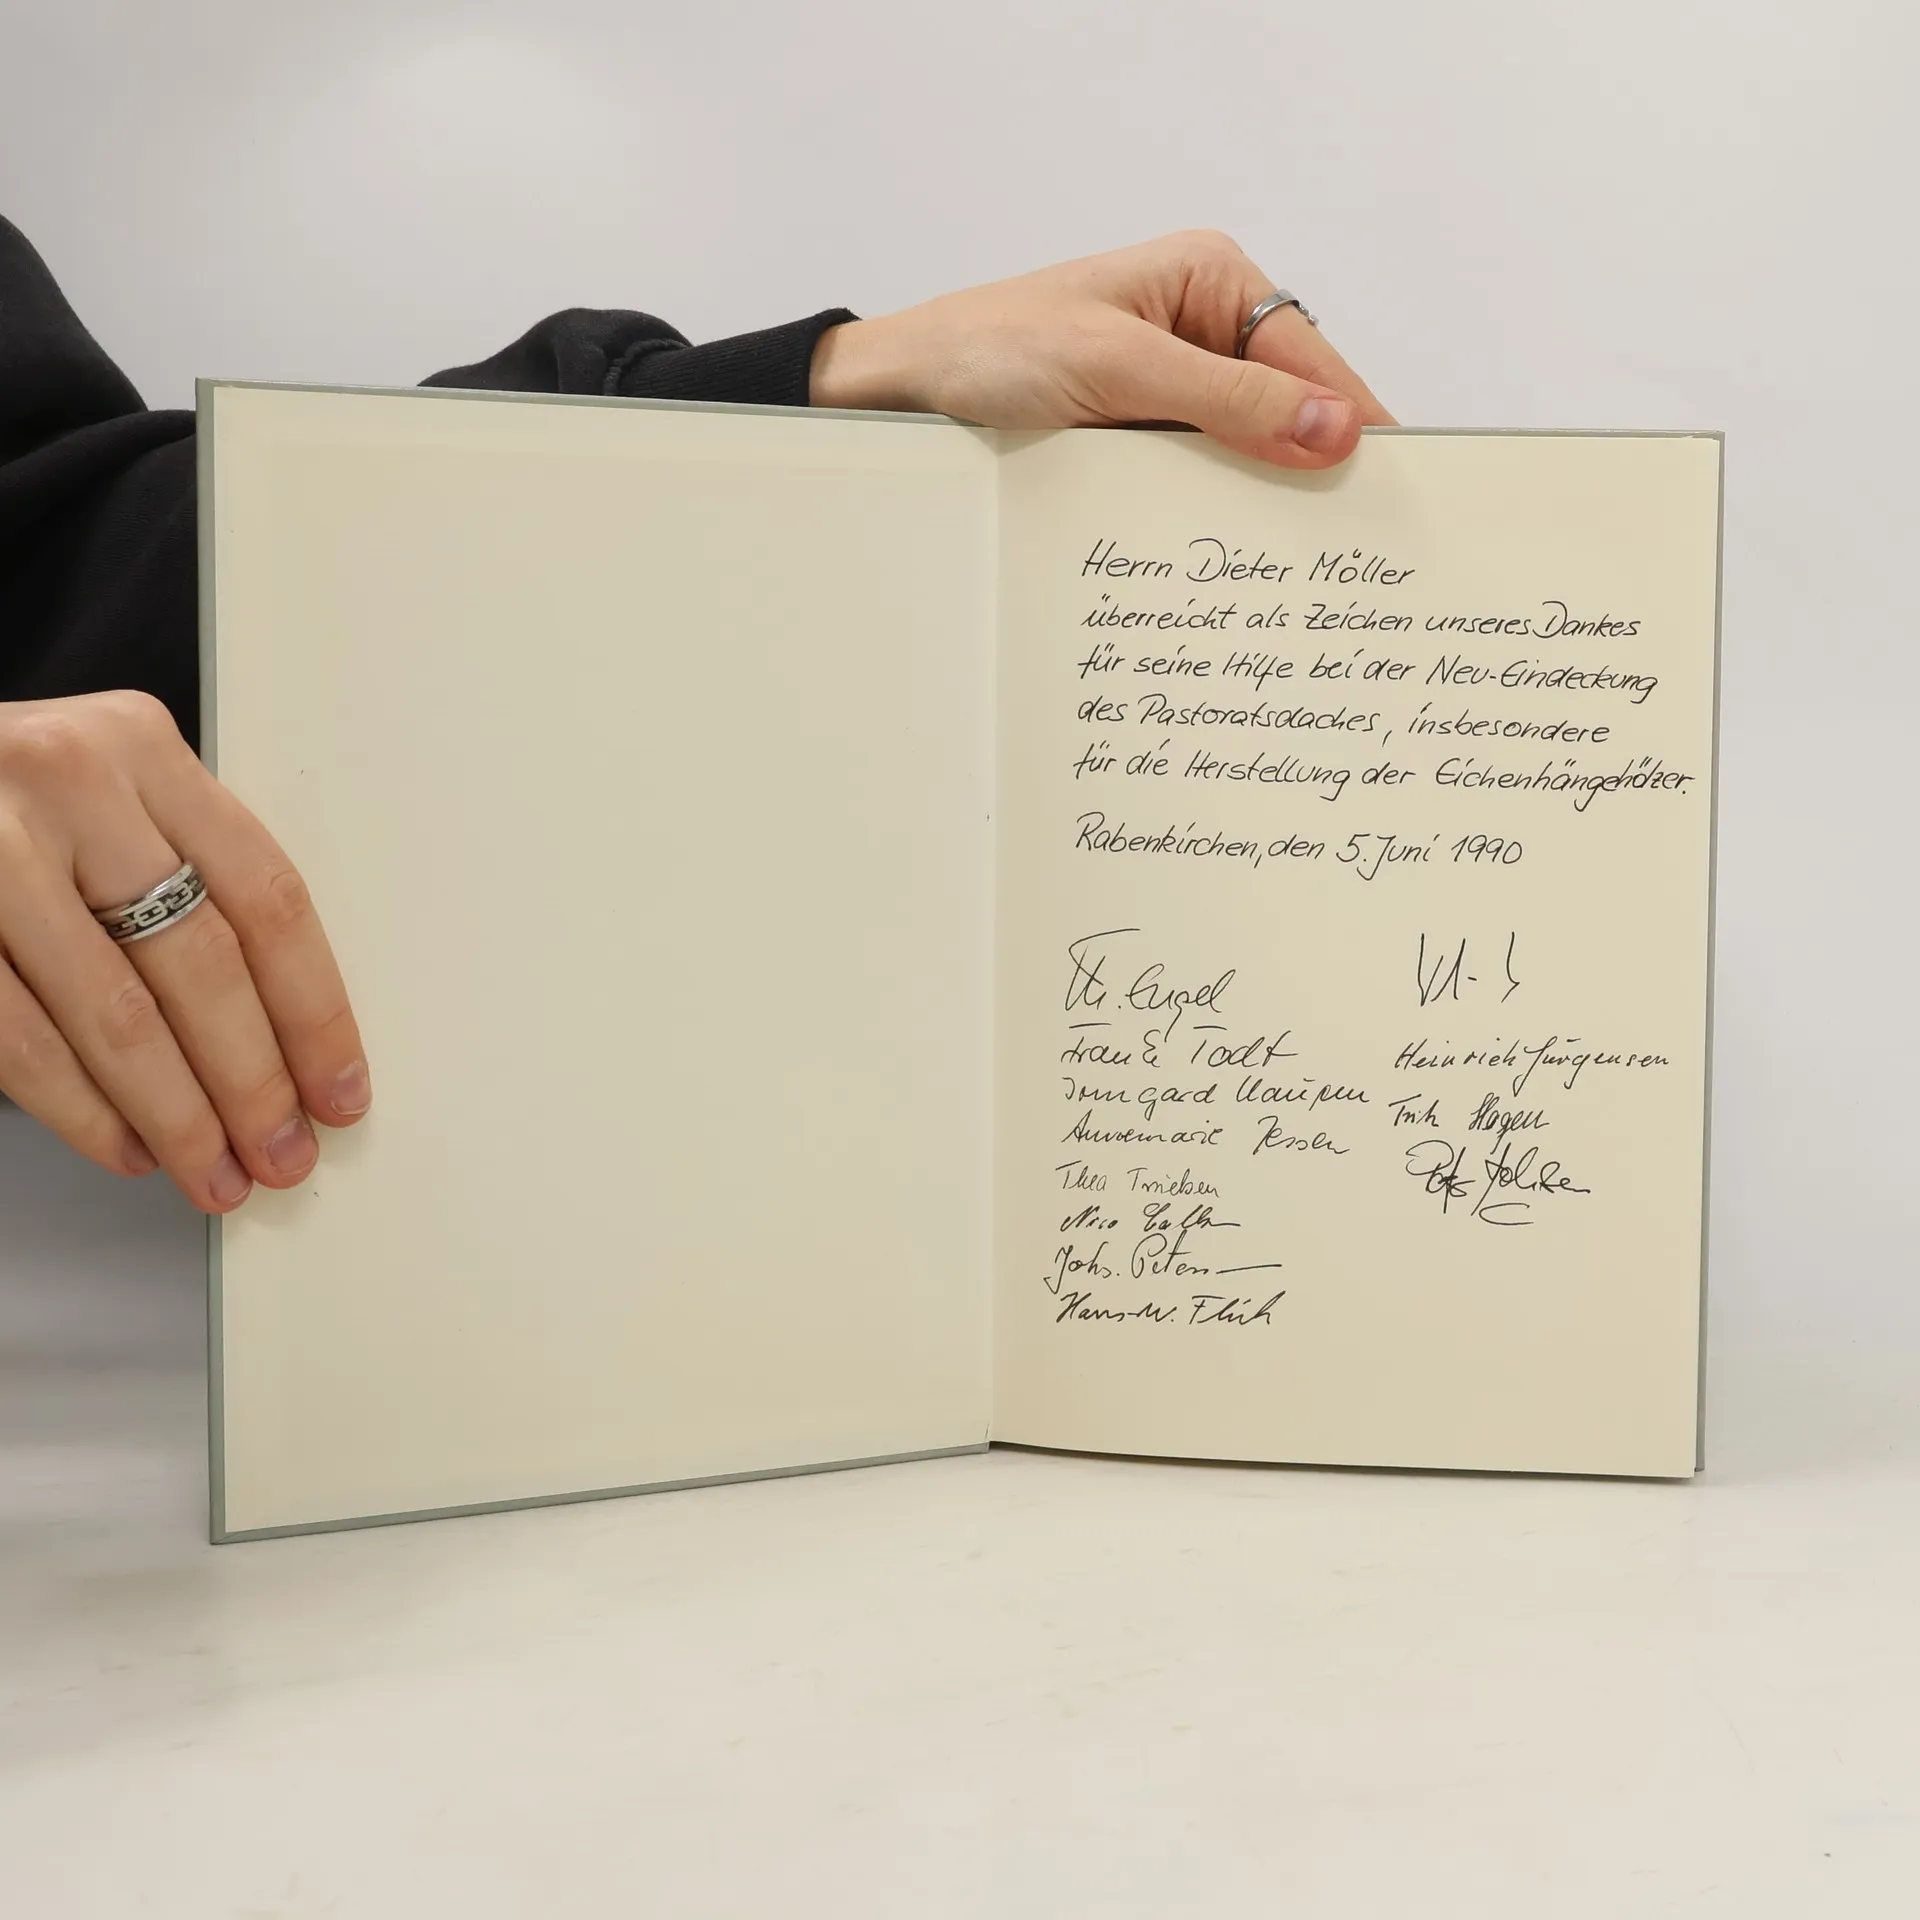 Herrn Dieter Möller
überreicht als Zeichen unseres Dankes
für seine Hilfe bei der Neu-Eindeckung
des Pastoratsdaches, insbesondere
für die Herstellung der Eichenhängehölzer.
Rabenkirchen, den 5. Juni 1990
Th. Engel
Frauke Todt
Irmgard
Annemarie Jessen
Thea
Nico
Johs. Petersen
Hans-W.
Heinrich Jürgensen
Hagen